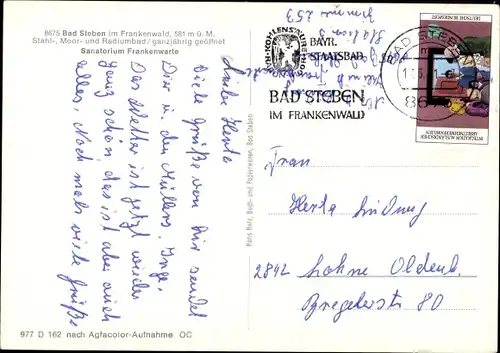 8675 Bad Steben im Frankenwald, 581 m ü. M.
Stahl-, Moor- und Radiumbad / ganzjährig geöffnet
Sanatorium Frankenwarte
Liebe Herta
Viele Grüße von hir sendet
Dir u. den Müllers. Inge.
Das Wetter ist jetzt wieder
ganz schön, das ist aber auch
alles. Noch mals viele Grüße
977 D 162 nach Agfacolor-Aufnahme OC
Hans Beer, Bade- und Papierwaren, Bad Steben
BAYR.
STAATSBAD
BAD STEBEN
IM FRANKENWALD
BAD STEBEN
DEUTSCHE BUNDESPOST
INTEGRATION AUSLÄNDISCHER
ARBEITNEHMERFAMILIEN
Zimmer 253
Frau
Herta
2842 Lohne Oldenb.
80